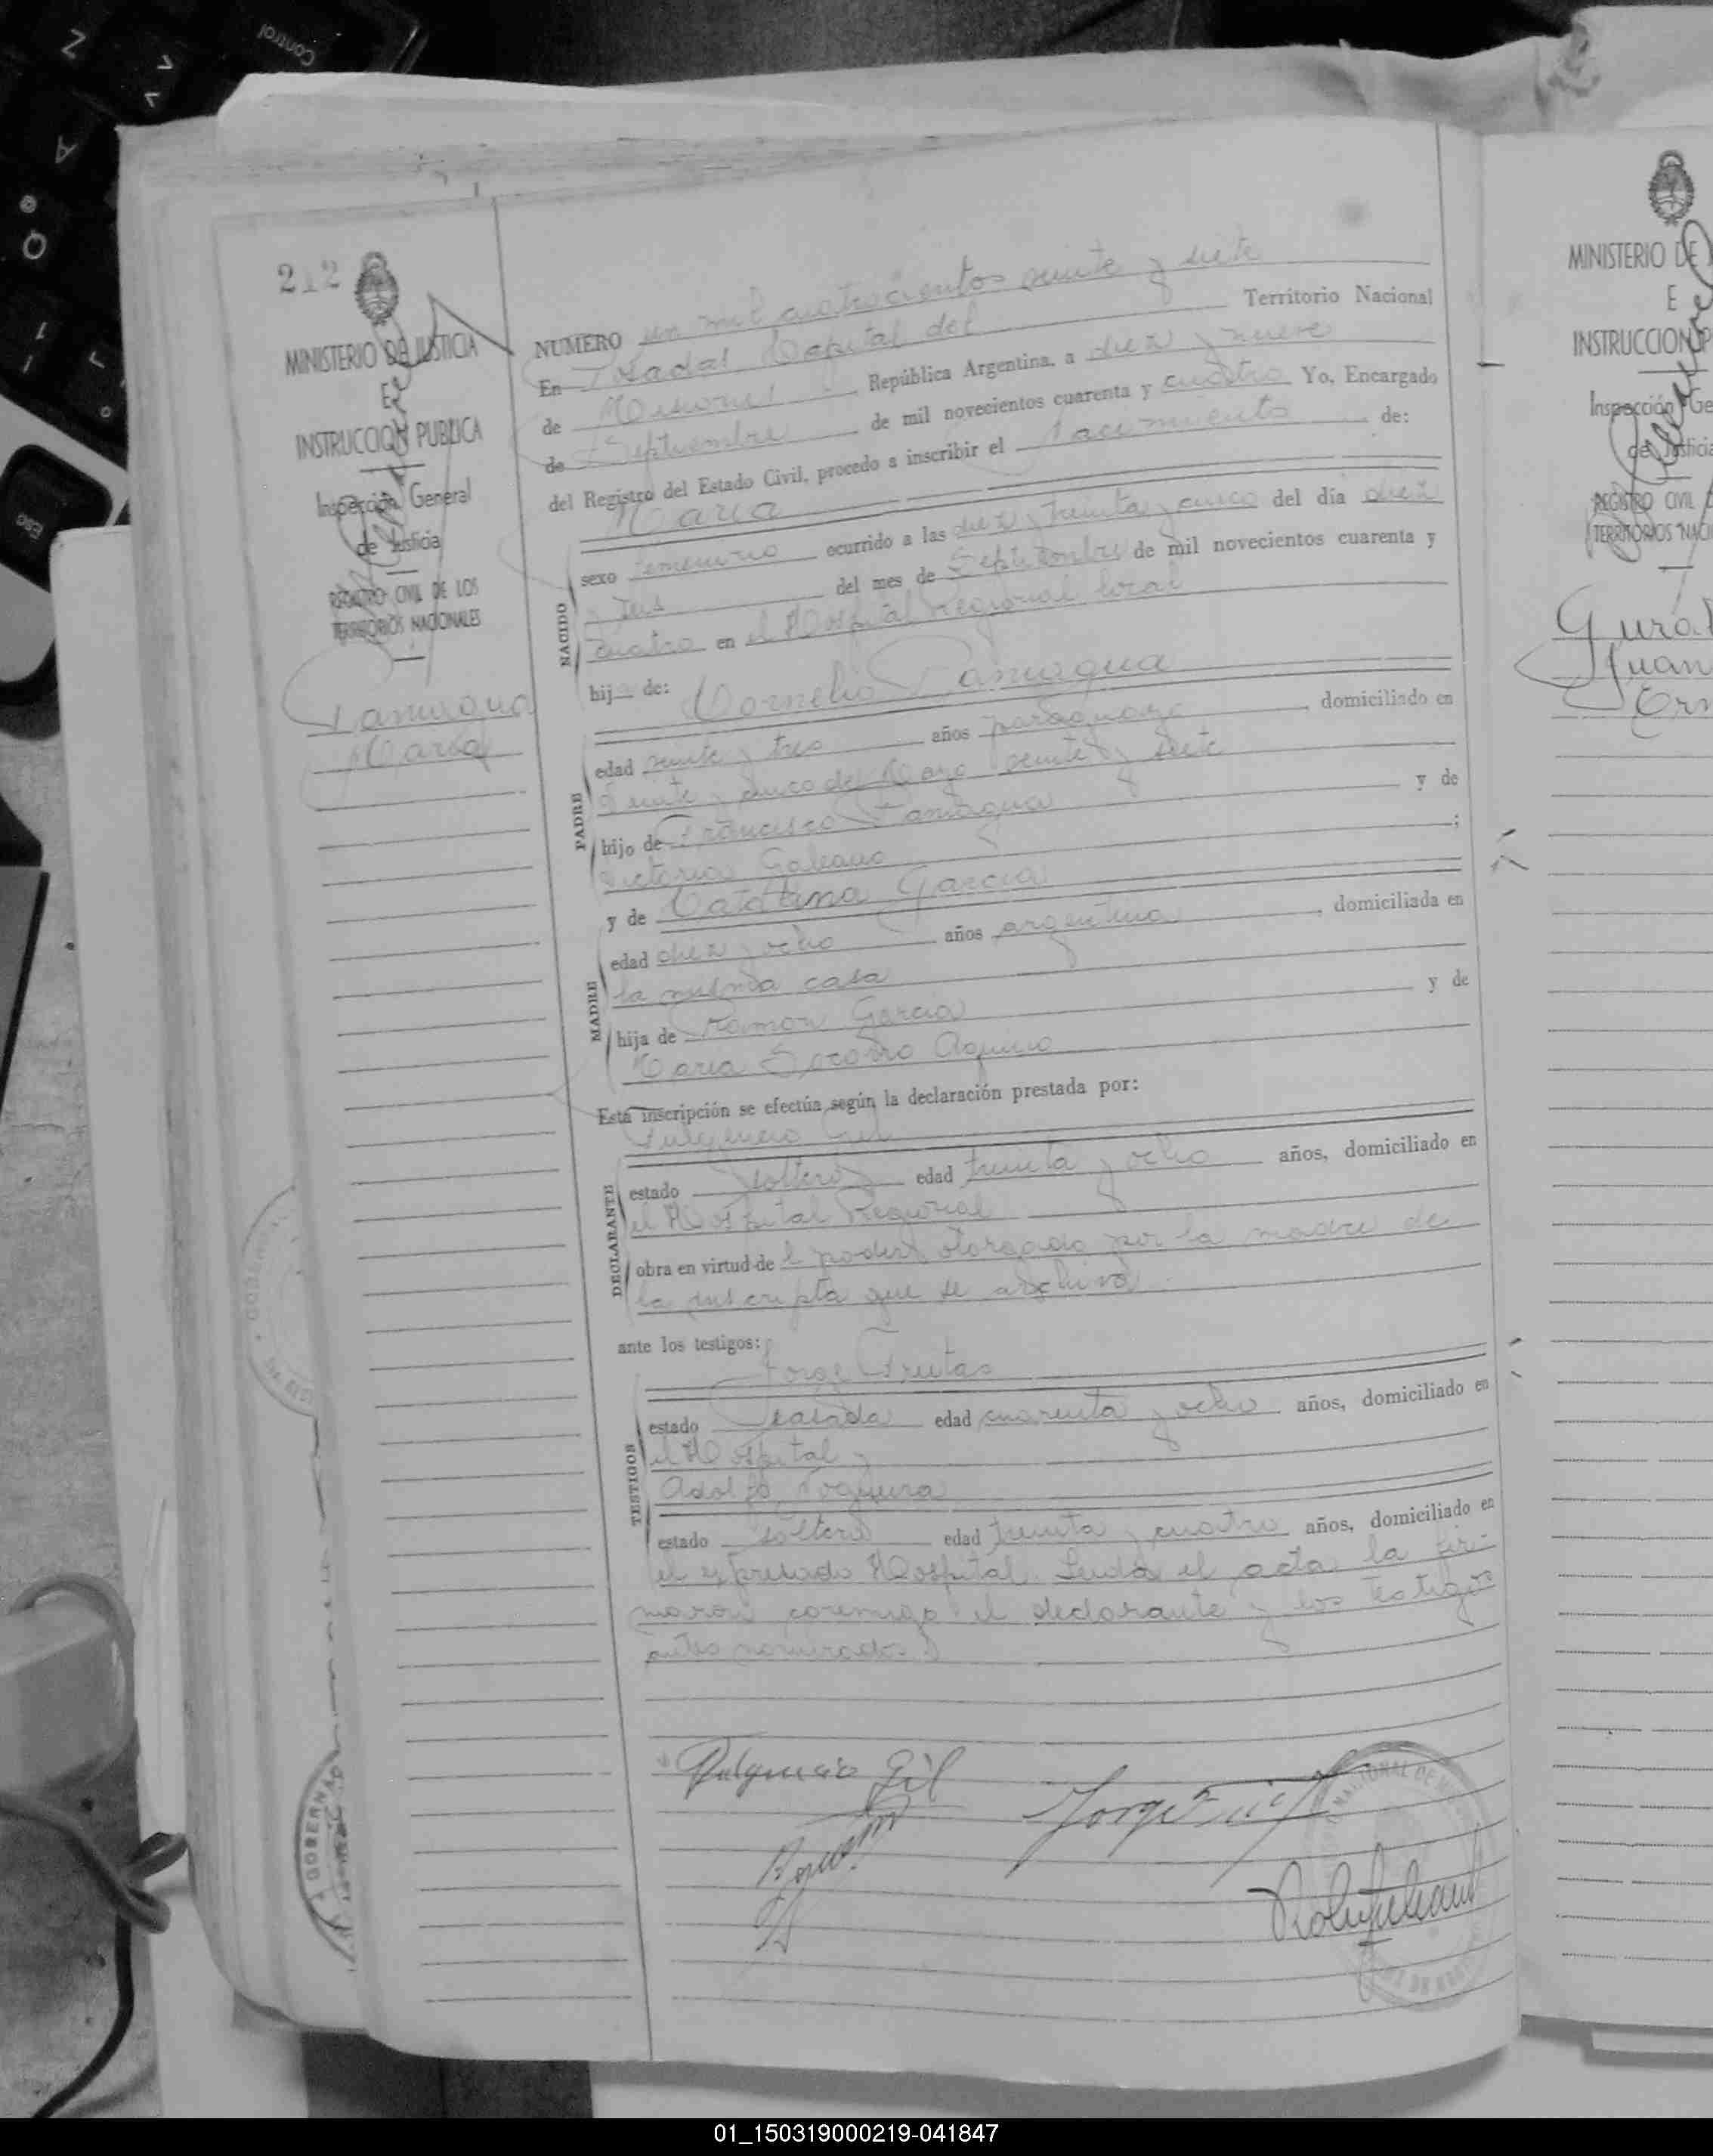 Control
Z
A
Q
Esc
212
MINISTERIO DE JUSTICIA
E
INSTRUCCION PUBLICA
Inspección General
de Justicia
REGISTRO CIVIL DE LOS
TERRITORIOS NACIONALES
Maria
NUMERO un mil cuatrocientos veinte y siete
En Posadas Capital del Territorio Nacional
de Misiones República Argentina, a diez y nueve
de Septiembre de mil novecientos cuarenta y cuatro Yo, Encargado
del Registro del Estado Civil, procedo a inscribir el Nacimiento de:
Maria
NACIDO
sexo femenino ocurrido a las diez y treinta y cinco del día diez
y seis del mes de Septiembre de mil novecientos cuarenta y
cuatro en el Hospital Regional local
hija de: Cornelio
PADRE
edad veinte y tres años paraguayo, domiciliado en
Veinte y cinco de Mayo veinte y siete
hijo de Francisco y de
Victoria Galeano ;
y de Catalina Garcia
MADRE
edad diez y ocho años argentina, domiciliada en
la misma casa
hija de Ramon Garcia y de
Maria Aquino
Esta inscripción se efectúa según la declaración prestada por:
Fulgencio Gil
DECLARANTE
estado soltero edad treinta y ocho años, domiciliado en
el Hospital Regional
obra en virtud de l poder otorgado por la madre de
la inscripta que se archiva
ante los testigos:
Jorge Freitas
TESTIGOS
estado casado edad cuarenta y ocho años, domiciliado en
el Hospital y
Adolfo Noguera
estado soltero edad treinta y cuatro años, domiciliado en
el expresado Hospital. Leida el acta la fir-
maron conmigo el declarante y los testigos
antes nombrados
Fulgencio Gil
Jorge
GOBERNA
MINISTERIO DE
E
INSTRUCCION P
Inspección Ge
de Justicia
REGISTRO CIVIL D
TERRITORIOS NACI
Juan
01_150319000219-041847